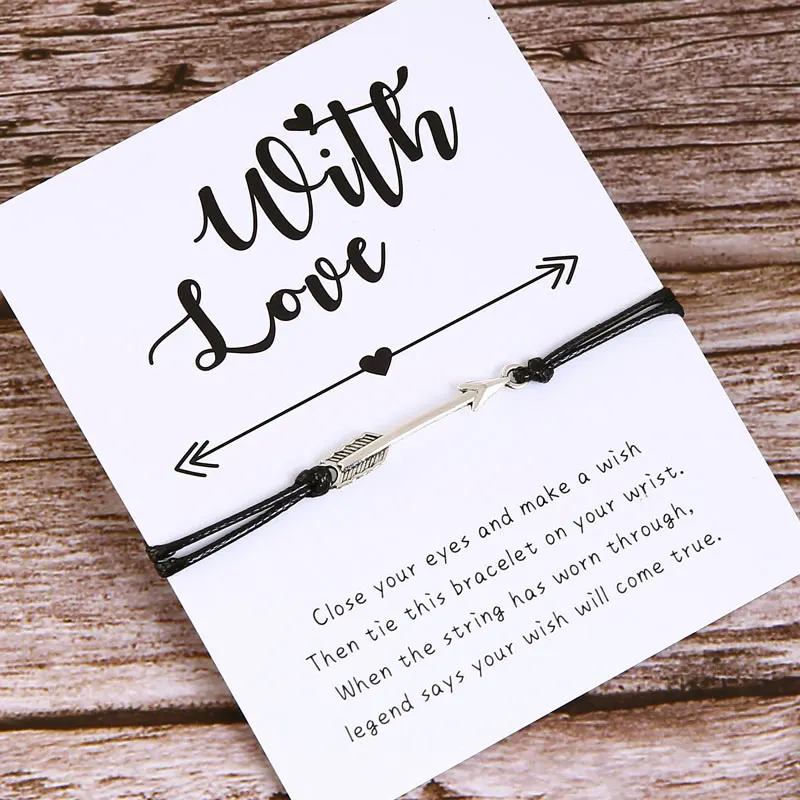 With
Love
Close your eyes and make a wish
Then tie this bracelet on your wrist.
When the string has worn through,
legend says your wish will come true.